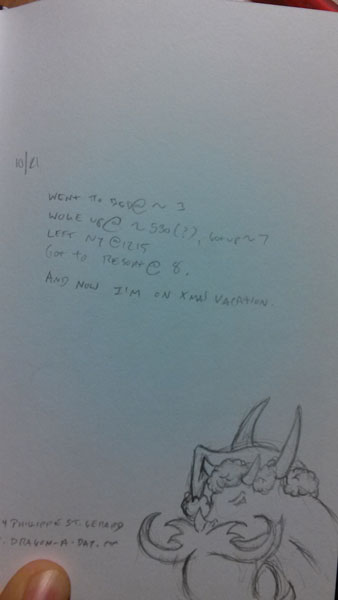 10/21
WENT TO BED@ ~ 3
WOKE UP@ ~ 530(?), ~ 7
LEFT NY @1215
GOT TO RESORT@ 8.
AND NOW I'M ON XMAS VACATION.
Y PHILIPPE ST. GERARD
. DRAGON-A-DAY.